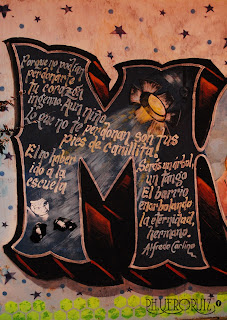 Porque no podían
perdonarte
tu corazón
ingenuo. Aun niño
Lo que no te perdonan son tus
pies de canillita!
El no haber
ido a la
escuela
Serás un árbol,
un tango
El barrio
enarbolando
la eternidad,
hermano.
Alfredo Carlino